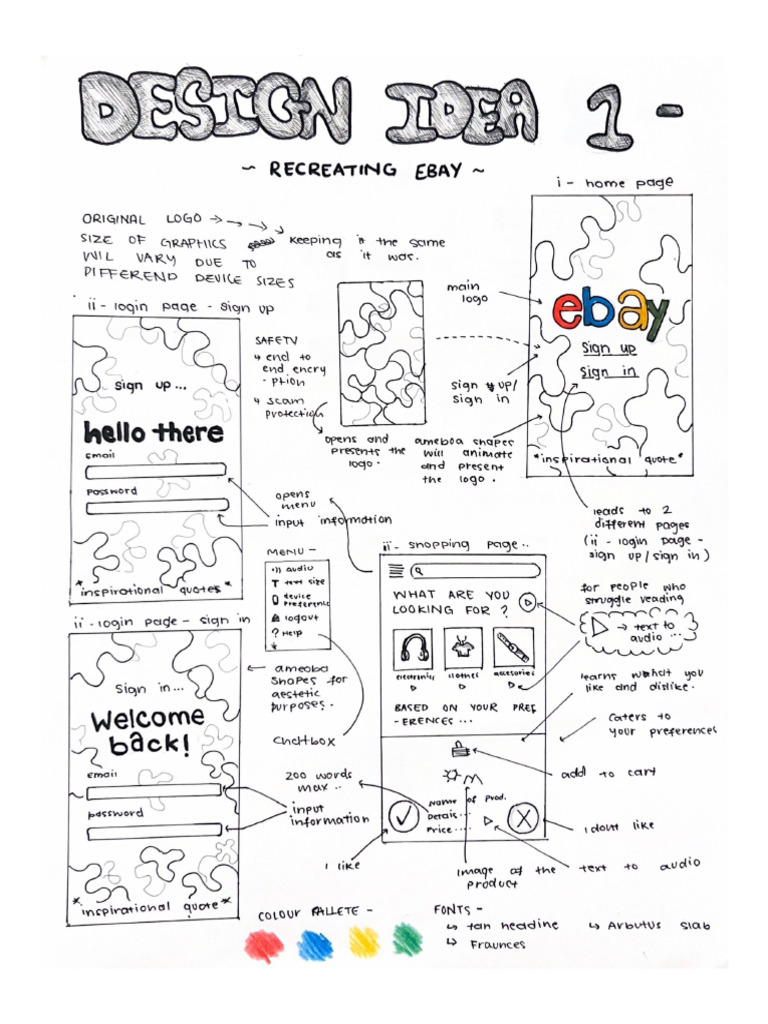 DESIGN IDEA 1 -
~ RECREATING EBAY ~
ORIGINAL LOGO
SIZE OF GRAPHICS
WIL VARY DUE TO
DIFFEREND DEVICE SIZES
keeping it the same
as it was.
i - home page
main
logo
ebay
Sign up
Sign in
*inspirational quote*
sign up/
sign in
ameoba shapes
will animate
and present
the logo.
opens and
presents the
logo.
leads to 2
different pages
(ii - login page -
sign up / sign in)
ii - login page - sign up
sign up...
hello there
Email
Password
*inspirational quotes*
SAFETY
↳ end to
end encry
-ption
↳ scam
protection
opens
menu
input information
MENU -
audio
T text size
device
preference
logout
? Help
ii - login page - sign in
Sign in...
Welcome
back!
email
password
*inspirational quote*
ameoba
shapes for
aestetic
purposes.
chattbox
200 words
max..
input
information
I like
iii - shopping page..
WHAT ARE YOU
LOOKING FOR ?
clothes
BASED ON YOUR PREF
-ERENCES...
Name of Prod.
Details...
Price....
for people who
struggle reading
→ text to
audio ...
learns what you
like and dislike.
caters to
your preferences
add to cart
I dont like
text to audio
image of the
product
COLOUR PALLETE -
FONTS -
↳ tan headine
↳ Arbutus Slab
↳ Fraunces